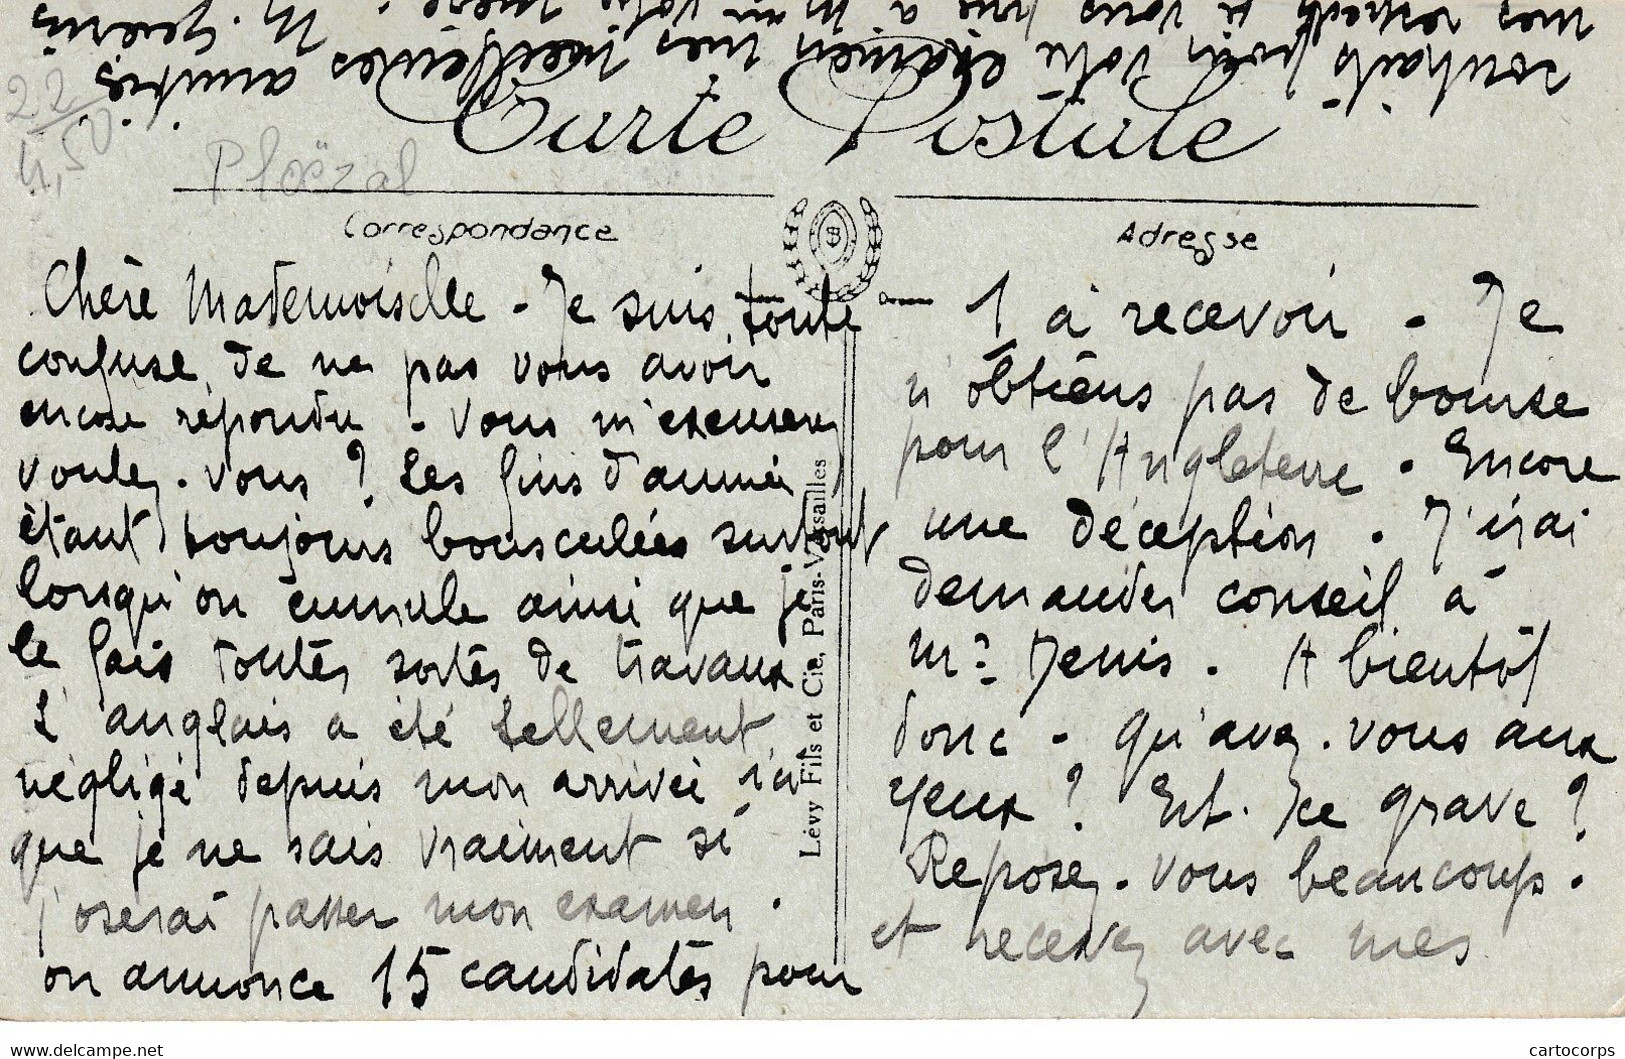 22
4,50
Ploëzal
Carte Postale
Correspondance
Adresse
Chère Mademoiselle - Je suis toute
confuse de ne pas vous avoir
encore répondu - Vous m'excuserez
voulez-vous ? Les fins d'année
étant toujours bousculées surtout
lorsqu'on cumule ainsi que je
le fais toutes sortes de travaux
L'anglais a été tellement
négligé depuis mon arrivée ici
que je ne sais vraiment si
j'oserai passer mon examen.
on annonce 15 candidates pour
1 à recevoir - Je
n'obtiens pas de bourse
pour l'Angleterre. Encore
une déception. J'irai
demander conseil à
Mr Denis. A bientôt
donc - qu'avez-vous aux
yeux ? Est-ce grave ?
Reposez-vous beaucoup.
et recevez avec mes
souhaits pour votre examen mes meilleures amitiés.
mes respects à votre mère. M. Guérin
Lévy Fils et Cie, Paris-Versailles
www.delcampe.net
cartocorps